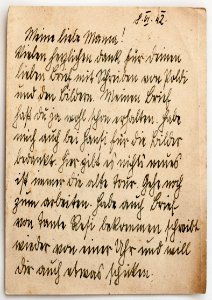 8.VI.42.
Meine liebe Mama!
Vielen herzlichen Dank für deinen
lieben Brief mit Schreiben von Poldi
und den Bildern. Meinen Brief
hast du ja wohl schon erhalten. Habe
mich auch bei Hansi für die Bilder
bedankt. Hier gibt es nichts neues
ist immer die alte Tour. Gehe noch
zum arbeiten. Habe auch Brief
von Tante Resi bekommen, schreibt
wieder von einer Uhr und will
dir auch etwas schicken.